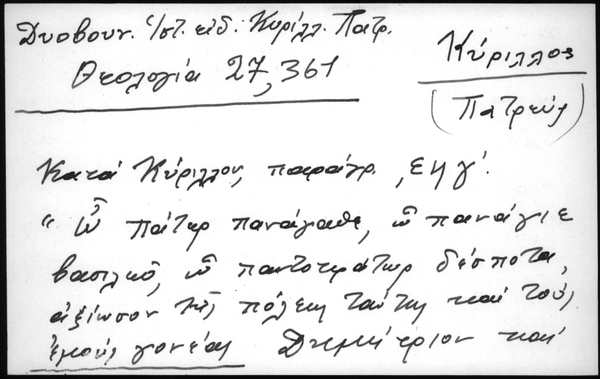 Δυοβουν. Ἱστ. εἰδ. Κυρίλλ. Πατρ.
Θεολογία 27, 361
Κύριλλος
(Πατρεύς)
Κατὰ Κύριλλον, παράγρ. ͵εηγ΄.
"ὦ Πάτερ πανάγαθε, ὦ πανάγιε
βασιλεῦ, ὦ παντοκράτωρ δέσποτα,
ἀξίωσον τῆς πόλεως ταύτης καὶ τοὺς
ἐμοὺς γονέας Δημήτριον καὶ